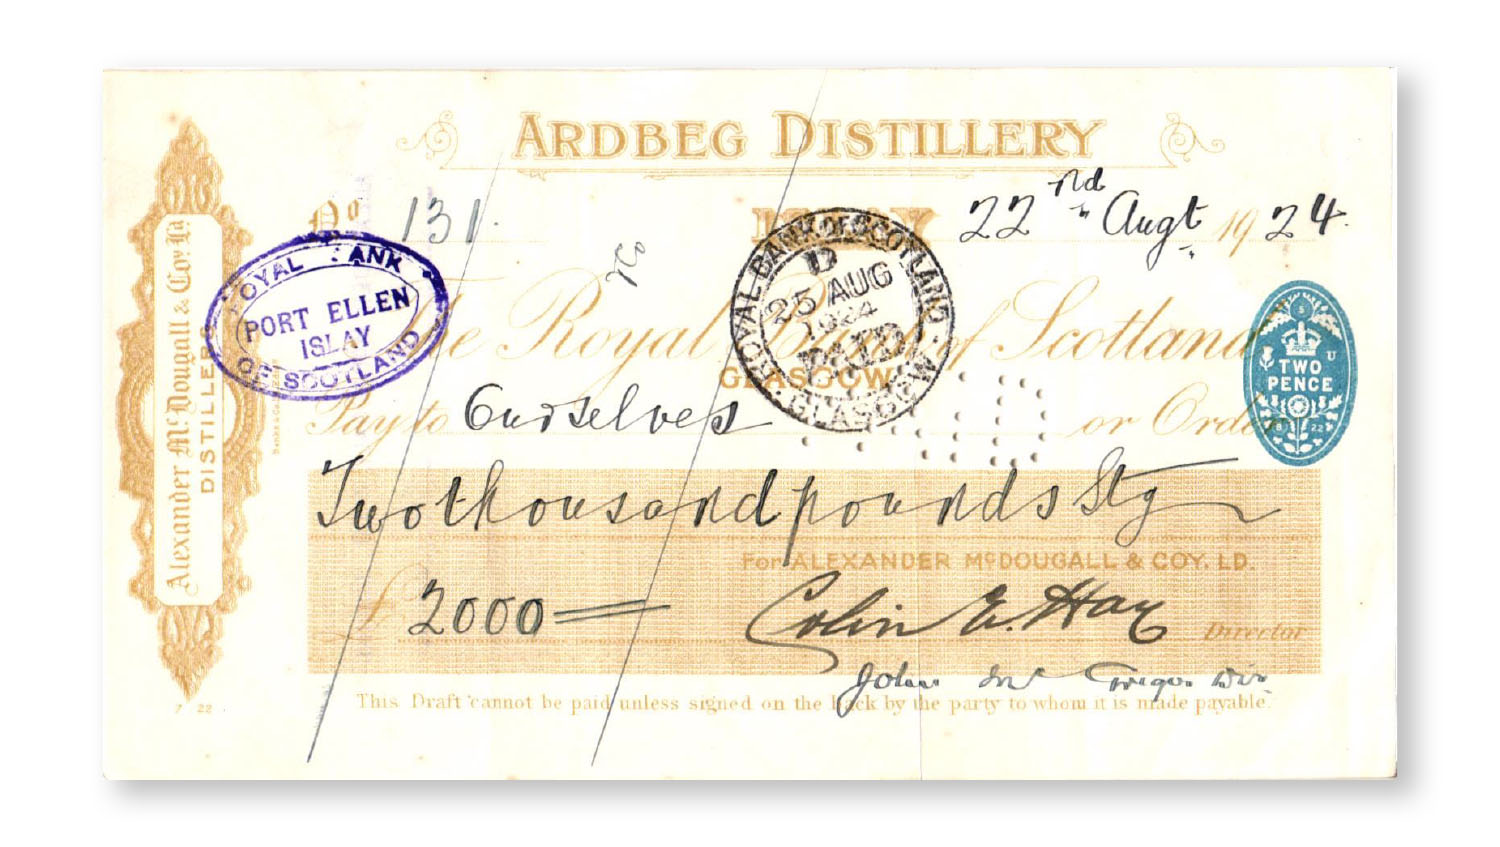 ARDBEG DISTILLERY
No 131.
ISLAY 22nd Augt. 1924.
& Co
ROYAL BANK OF SCOTLAND
PORT ELLEN
ISLAY
ROYAL BANK OF SCOTLAND GLASGOW
D
25 AUG
1924
PAID
The Royal Bank of Scotland
GLASGOW
TWO
PENCE
22
Pay to Ourselves or Order
Two thousand pounds Stg
For ALEXANDER McDOUGALL & COY. LD.
£ 2000 Colin E. Hay Director
John
This Draft cannot be paid unless signed on the back by the party to whom it is made payable.
Alexander McDougall & Coy. Ld
DISTILLERS
7 22